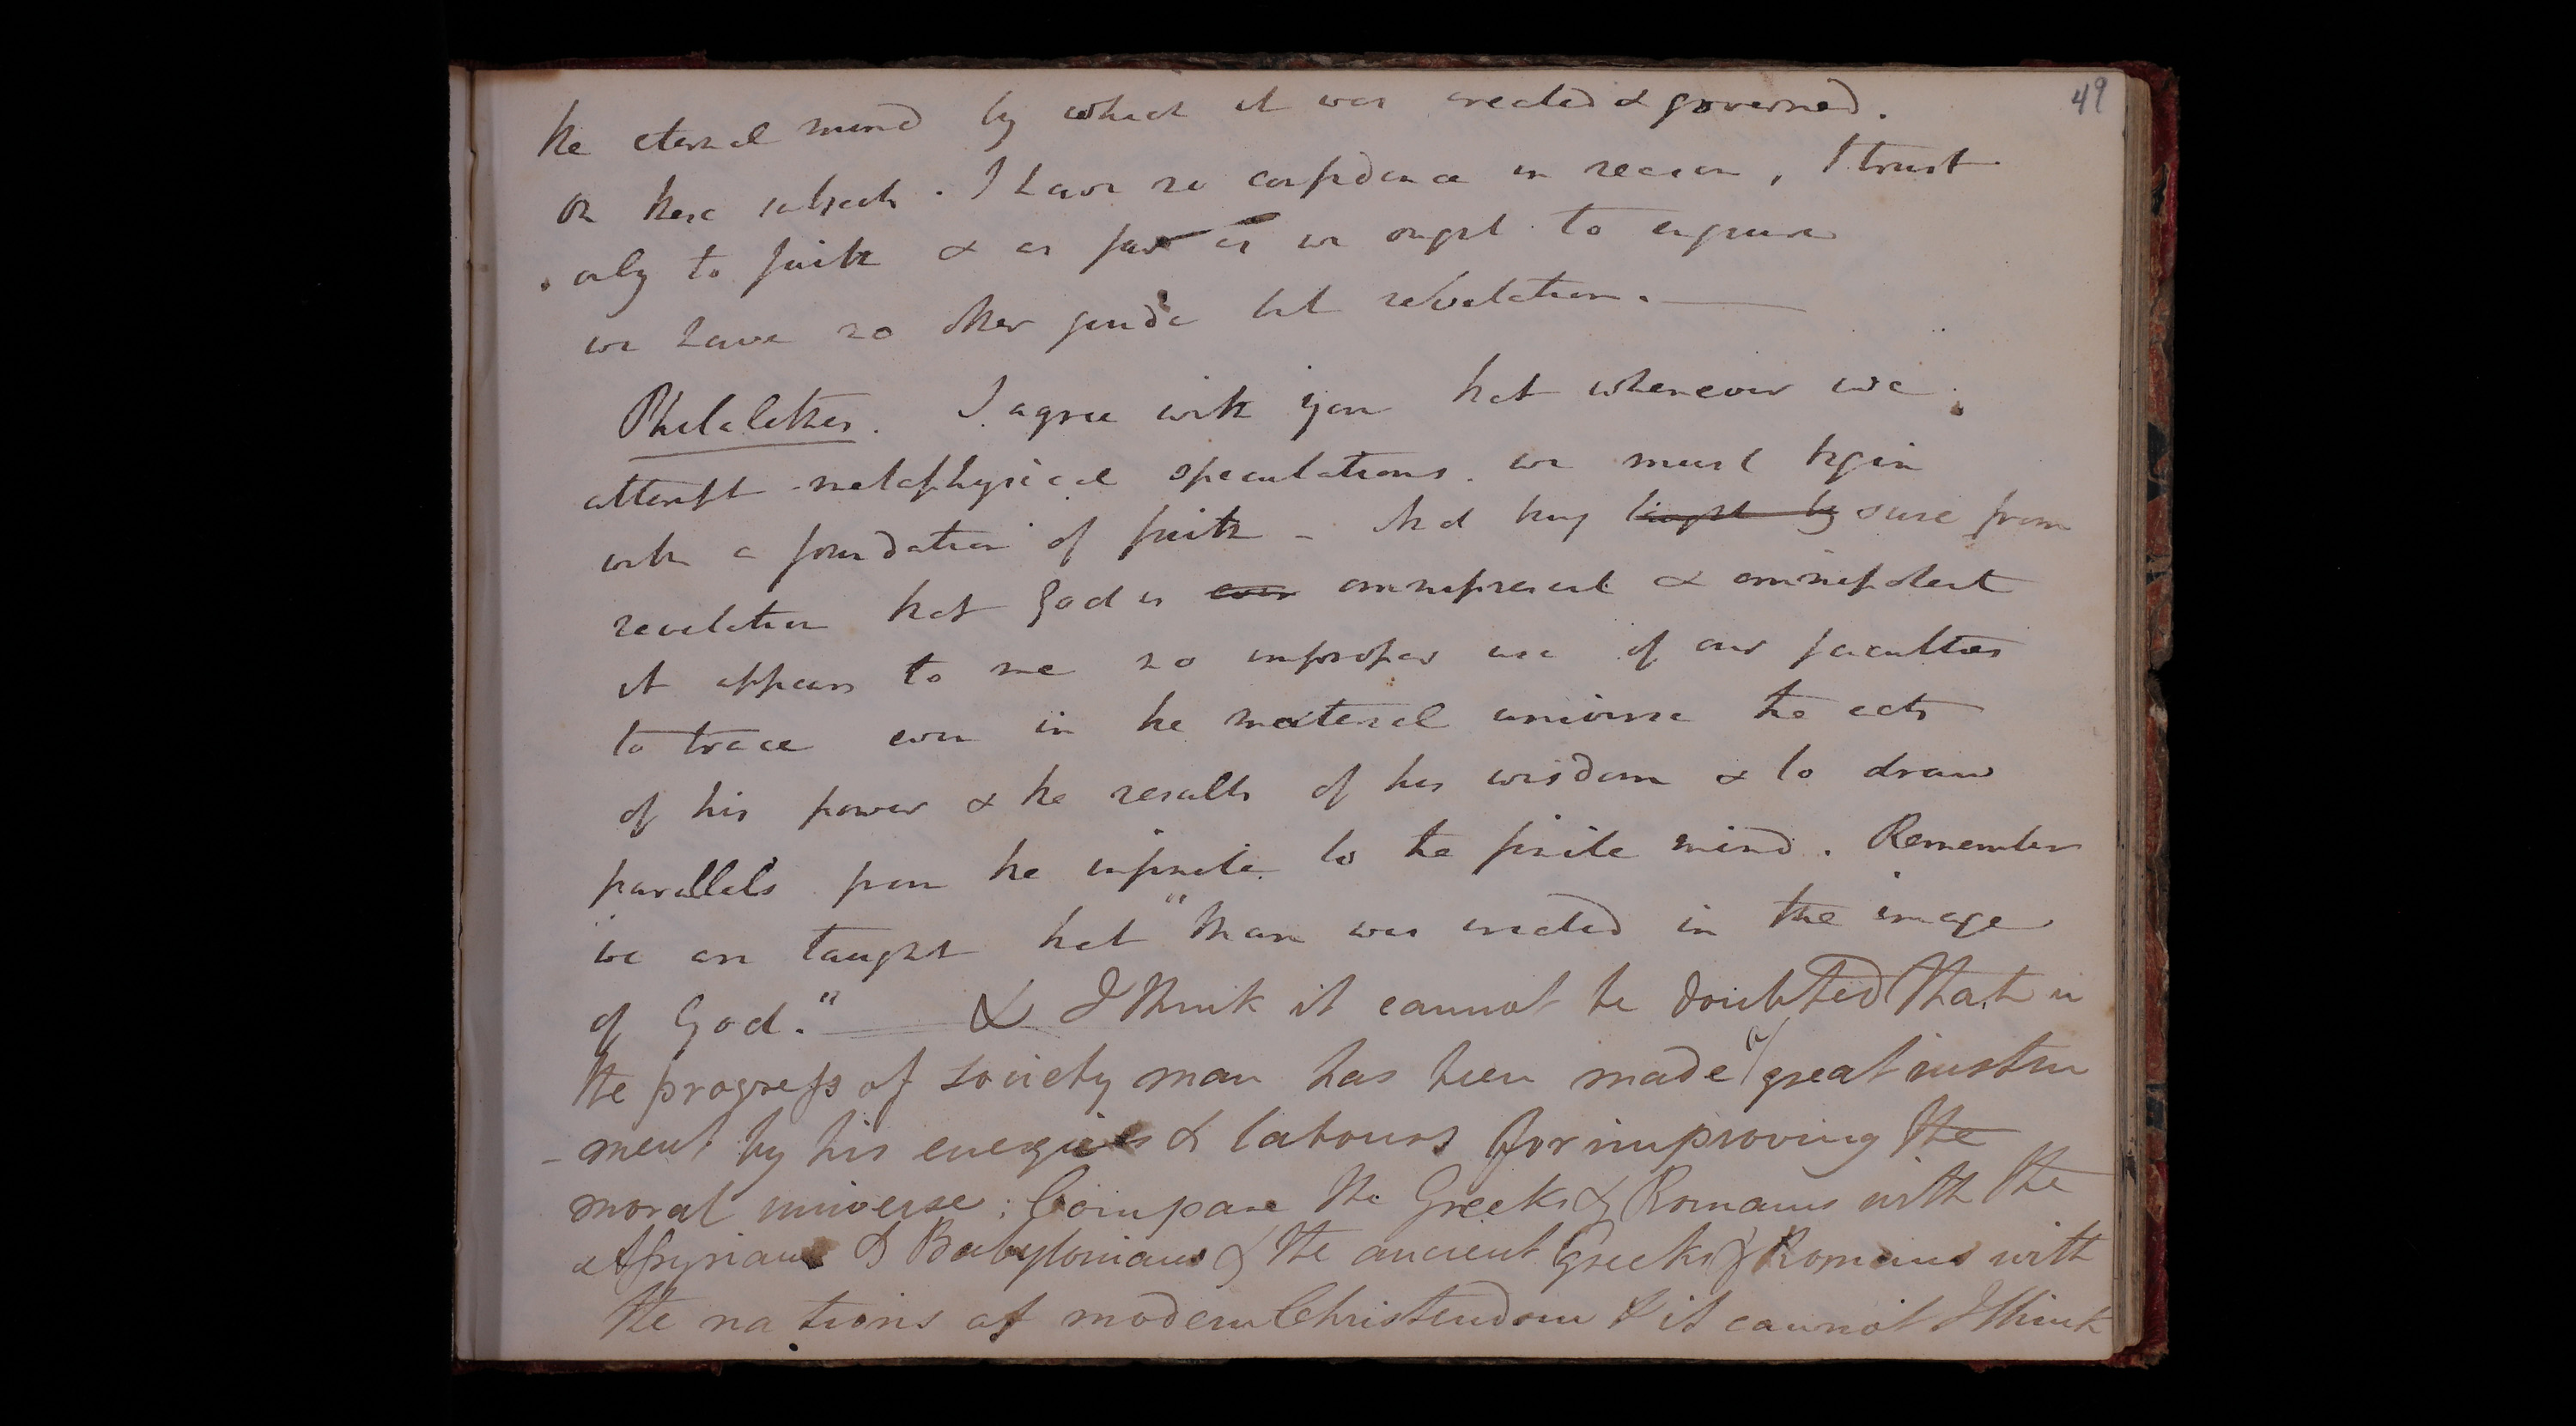 49
the eternal mind by which it was created & governed.
On these subjects. I have no confidence in reason, I trust
only to faith & as far as we ought to enquire
we have no other guide but revelation. —
Philalethes. I agree with you that whenever we
attempt metaphysical speculations we must begin
with a foundation of faith - And being taught by sure from
revelation that God is ever omnipresent & omnipotent
it appears to me no improper use of our faculties
to trace even in the material universe the acts
of his power & the results of his wisdom & to draw
parallels from the infinite to the finite mind. Remember
we are taught that "Man was created in the image
of God." — & I think it cannot be doubted that in
the progress of society man has been made a great instru
-ment by his energies & labours for improving the
moral universe; Compare the Greeks & Romans with the
Assyrians & Babylonians & the ancient Greeks & Romans with
the nations of modern Christendom & it cannot I think